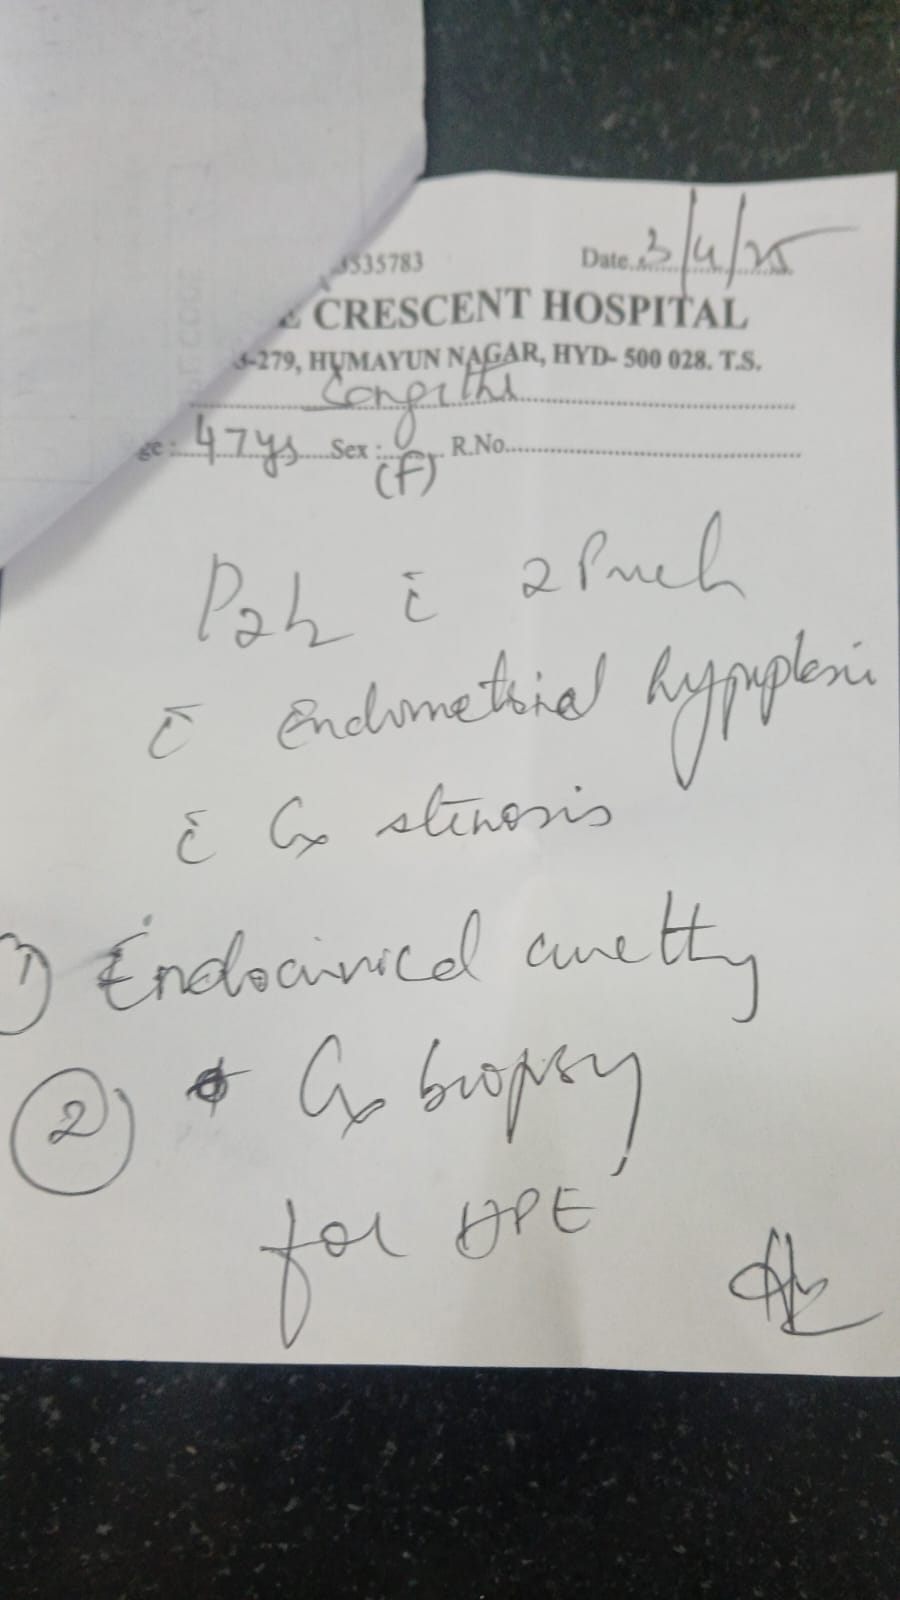 3535783 Date 3/4/25
CRESCENT HOSPITAL
3-279, HUMAYUN NAGAR, HYD- 500 028. T.S.
Sangitha
ge: 47ys Sex: (F) R.No.
P2L2 c̄ 2 Prech
c̄ Endometrial hyperplasia
c̄ Cx stenosis
1) Endocervical curettage
2) Cx biopsy
for HPE